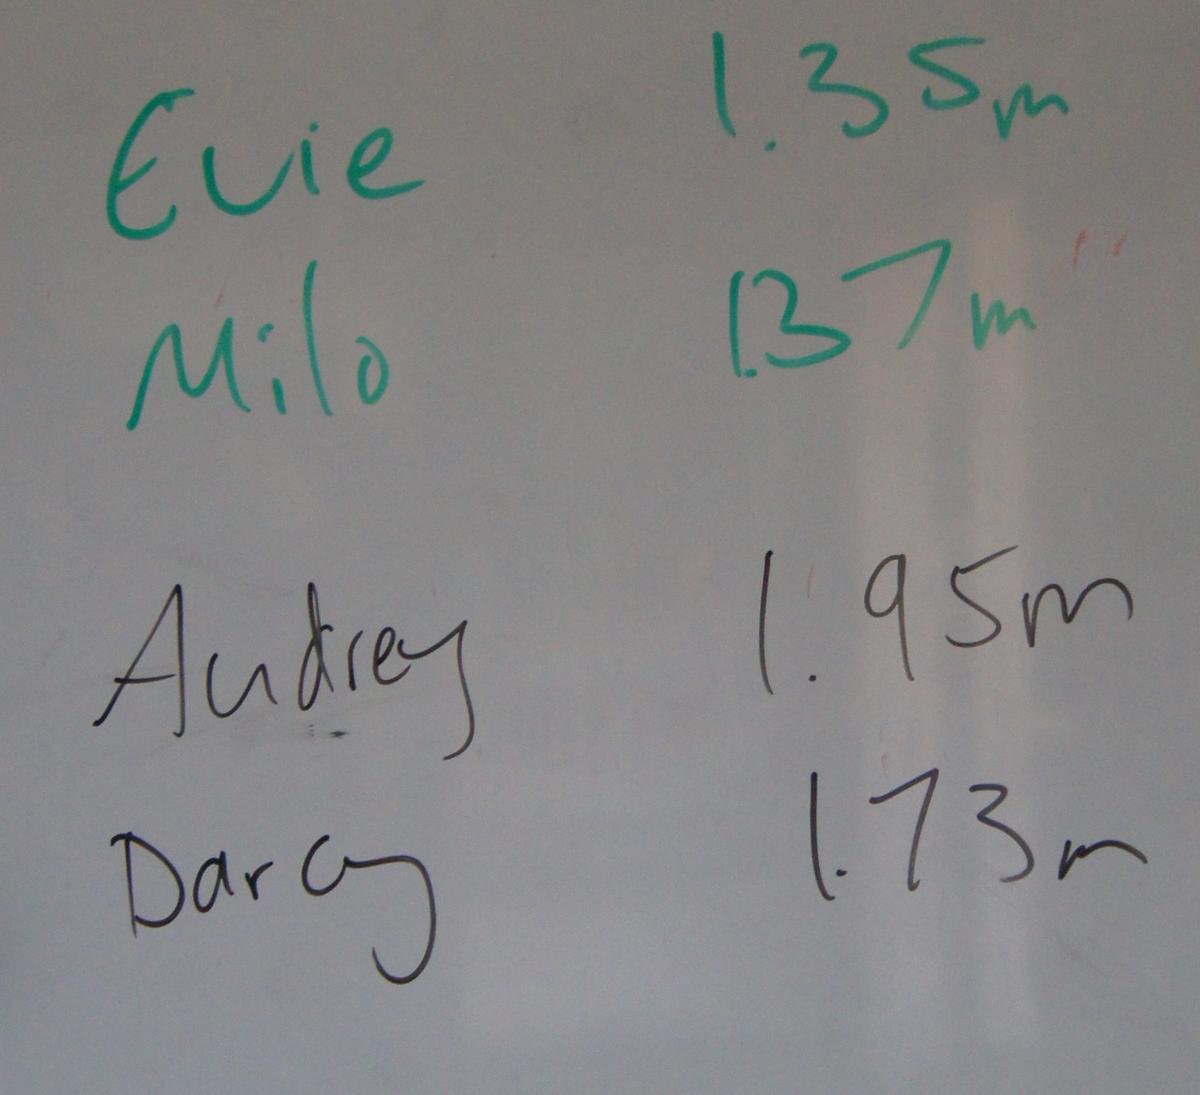 Evie 1.35m
Milo 1.37m
Audrey 1.95m
Darcy 1.73m